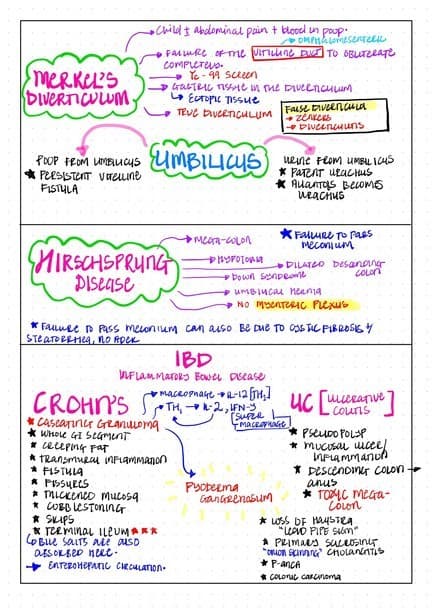 Child ± abdominal pain + blood in poop.
OMPHALOMESENTERIC
FAILURE OF THE VITILINE DUCT TO OBLITERATE
COMPLETELY.
MERKEL'S
DIVERTICULUM
Tc-99 SCREEN
GASTRIC TISSUE IN THE DIVERTICULUM
ECTOPIC TISSUE
TRUE DIVERTICULUM
FALSE DIVERTICULA
→ ZENKERS
→ DIVERTICULITIS
UMBILICUS
POOP FROM UMBILICUS
★ PERSISTENT VITELLINE
FISTULA
URINE FROM UMBILICUS
★ PATENT URACHUS
★ ALLANTOIS BECOMES
URACHUS
HIRSCHSPRUNG
DISEASE
MEGA-COLON
★ FAILURE TO PASS
MECONIUM
HYPOTONIA
DILATED DESCENDING
COLON
DOWN SYNDROME
UMBILICAL HERNIA
NO MYENTERIC PLEXUS
★ FAILURE TO PASS MECONIUM CAN ALSO BE DUE TO CYSTIC FIBROSIS &
STEATORRHEA, NO ADEK
IBD
INFLAMMATORY BOWEL DISEASE
CROHN'S
MACROPHAGE → IL-12 [TH1]
TH1 → IL-2, IFN-γ
[SUPER
MACROPHAGE]
★ CASEATING GRANULOMA
★ WHOLE GI SEGMENT
★ CREEPING FAT
★ TRANSMURAL INFLAMMATION
★ FISTULA
★ FISSURES
★ THICKENED MUCOSA
★ COBBLESTONING
★ SKIPS
★ TERMINAL ILEUM ★★★
BILE SALTS ARE ALSO
ABSORBED HERE.
→ ENTEROHEPATIC CIRCULATION.
PYODERMA
GANGRENOSUM
UC [ULCERATIVE
COLITIS]
★ PSEUDOPOLYP
★ MUCOSAL ULCER/
INFLAMMATION
★ DESCENDING COLON →
ANUS
★ TOXIC MEGA-
COLON
★ LOSS OF HAUSTRA
"LEAD PIPE SIGN"
★ PRIMARY SCLEROSING
"ONION SKINNING" CHOLANGITIS
★ P-ANCA
★ COLONIC CARCINOMA